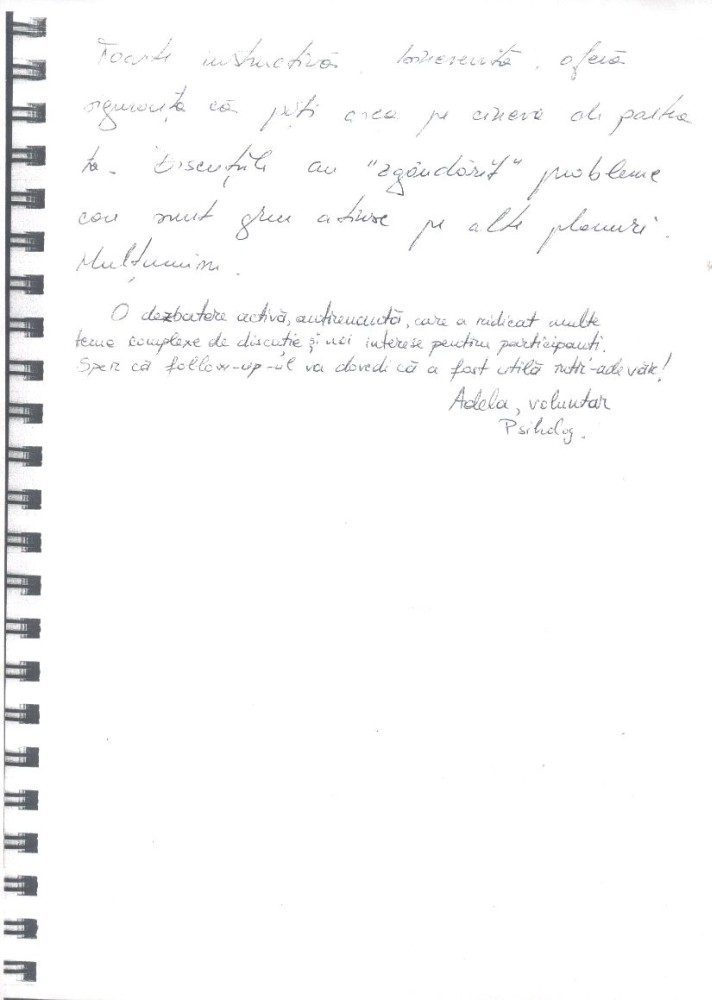 Foarte instructivă, binevenită, oferă
siguranța că poți avea pe cineva de partea
ta. Discuțiile au "zgândărit" probleme
care sunt greu atinse pe alte planuri.
Mulțumim.
O dezbatere activă, antrenantă, care a ridicat multe
teme complexe de discuție și noi interese pentru participanti.
Sper că follow-up-ul va dovedi că a fost utilă într-adevăr!
Adela, voluntar
Psiholog.